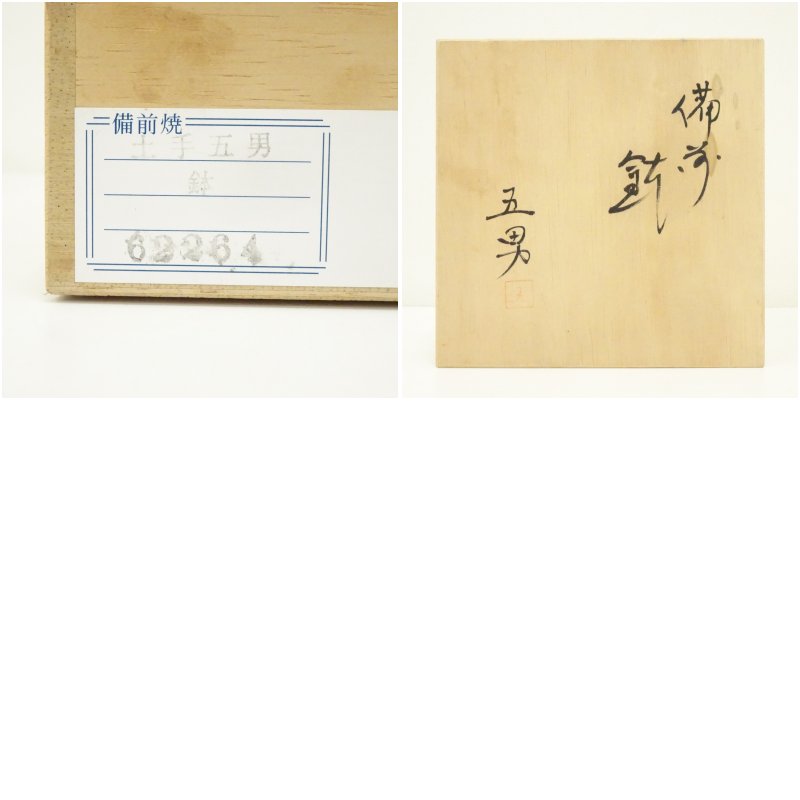 備前焼
土手五男
鉢
62264
備前
鉢
五男